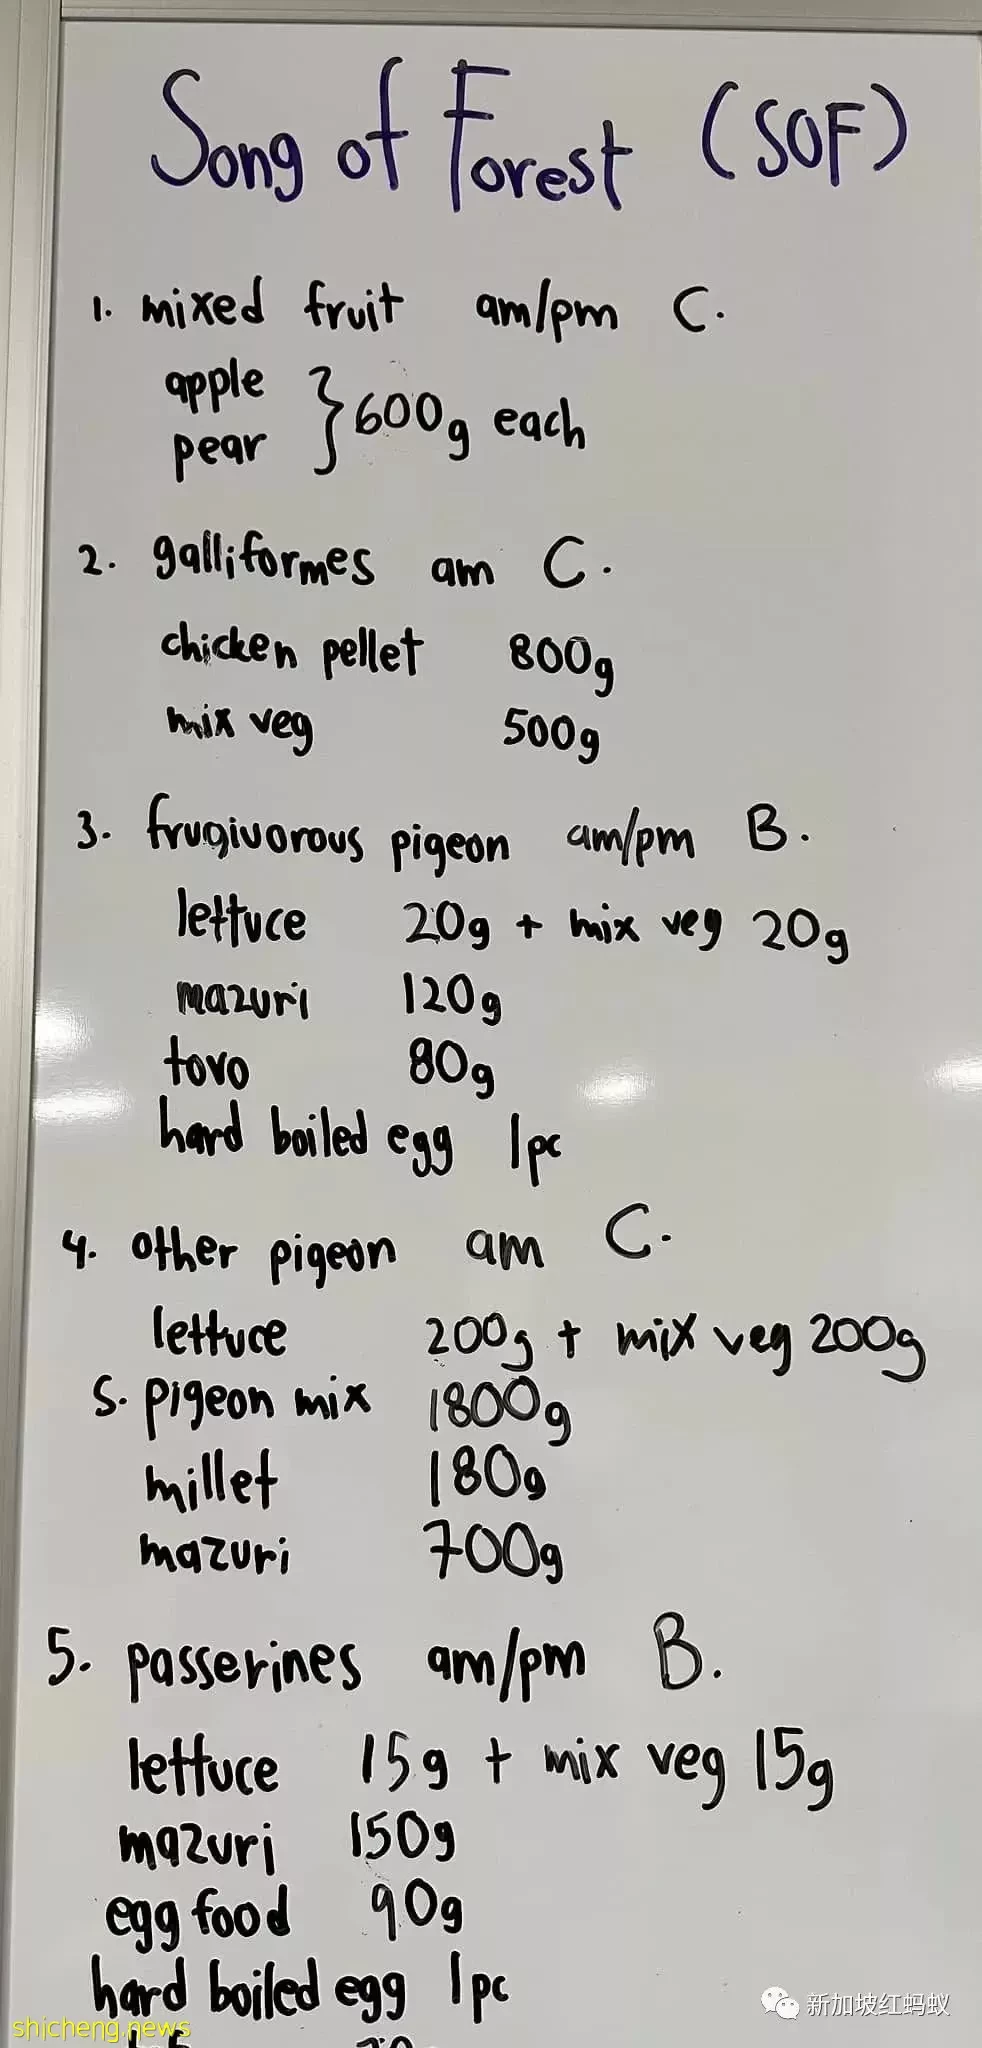 Song of Forest (SOF)
1. mixed fruit am/pm C.
apple
pear } 600g each
2. galliformes am C.
chicken pellet 800g
mix veg 500g
3. frugivorous pigeon am/pm B.
lettuce 20g + mix veg 20g
mazuri 120g
tovo 80g
hard boiled egg 1pc
4. other pigeon am C.
lettuce 200g + mix veg 200g
S. pigeon mix 1800g
millet 180g
mazuri 700g
5. passerines am/pm B.
lettuce 15g + mix veg 15g
mazuri 150g
egg food 90g
hard boiled egg 1pc
新加坡红蚂蚁
shicheng.news